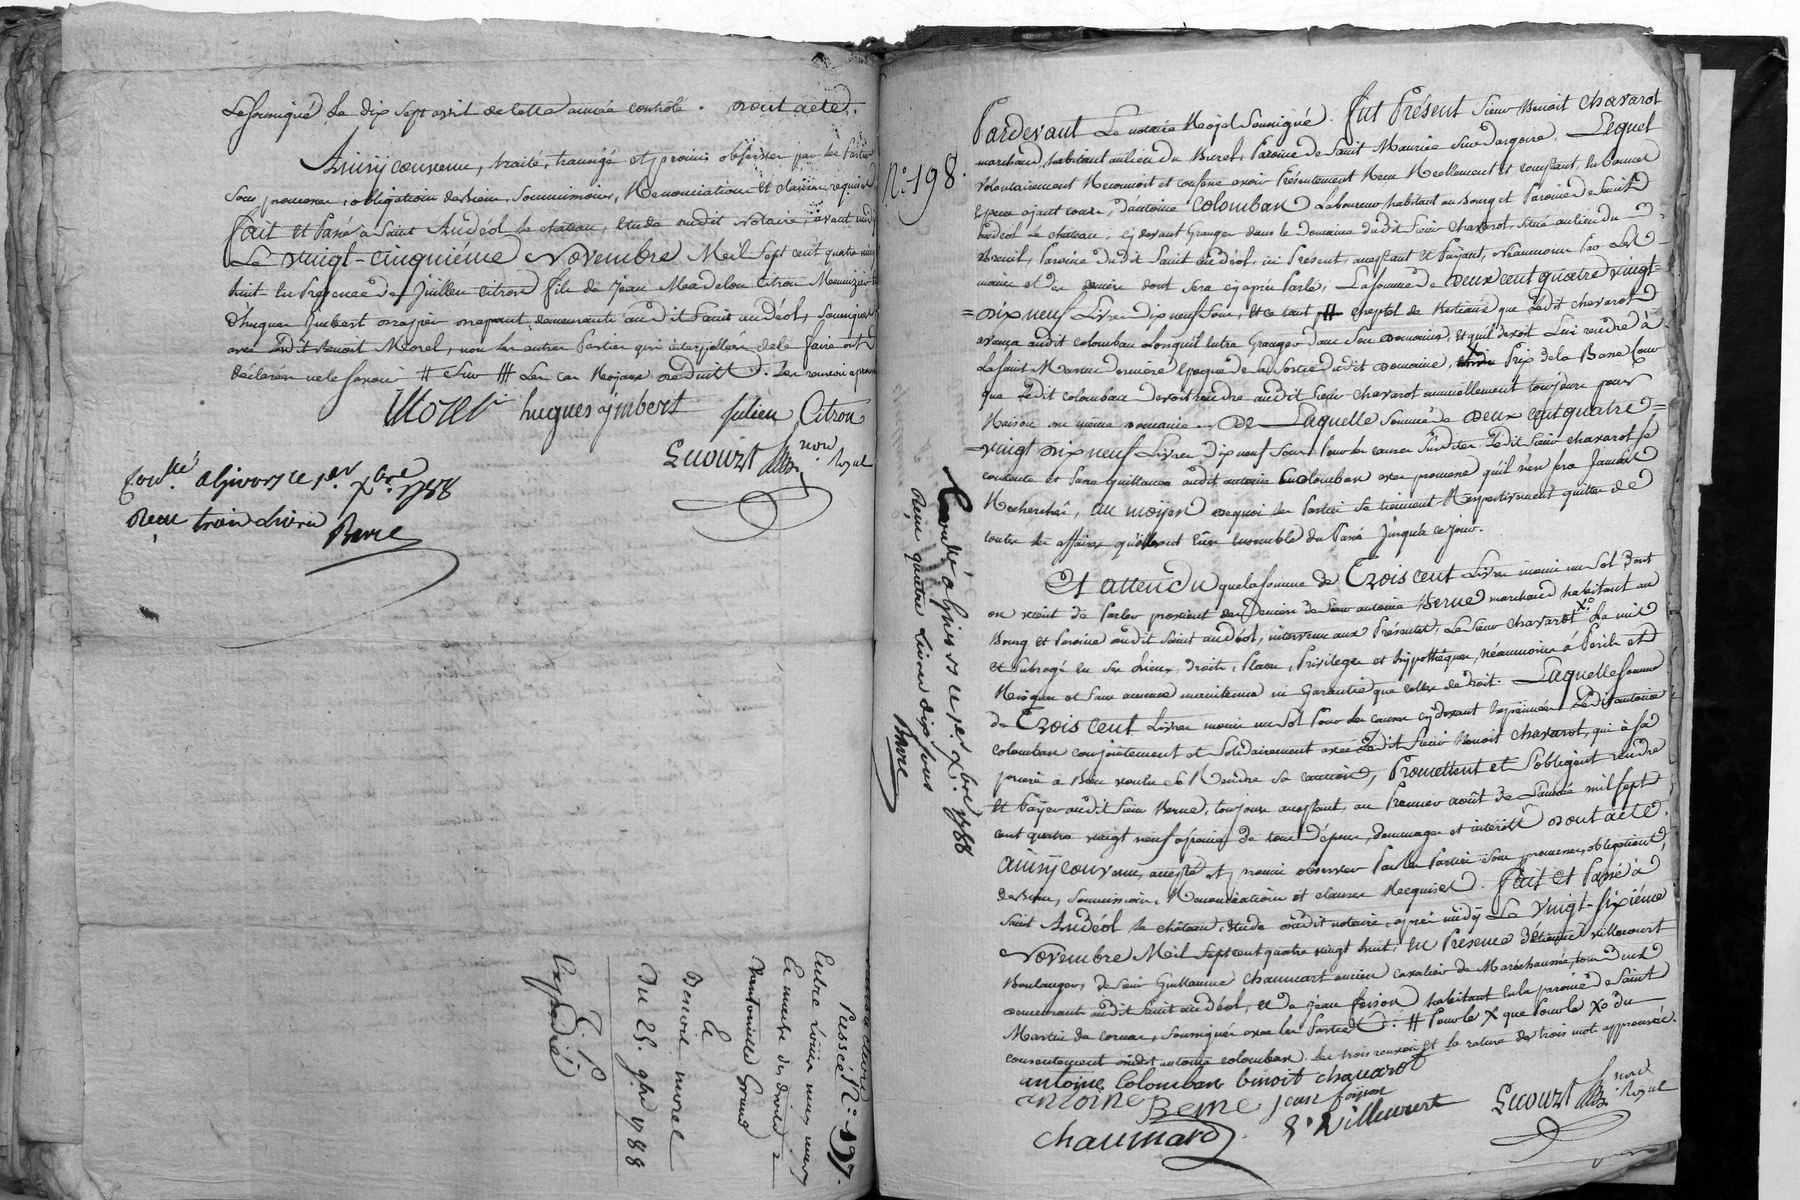 Le soussigné le dix sept avril de cette année controlé. dont acte.
Ainsy convenu, traité, transigé et promis observer par les Parties
sous promesses, obligations de biens, soumissions, Renonciations et clauses requises
fait et Passé à Saint Andéol le chateau, Etude dudit Notaire, avant midy
Le vingt-cinquiéme Novembre Mil sept cent quatre vingt
huit En Presence de Juillien Citron fils de Jean Madelon Citron Menuizier
d'hugues Imbert demeurants audit Saint andéol, soussignés
avec Ledit Benoit Morel, non les autres Parties qui interpellées de le faire ont
déclarées ne le scavoir # sur ## Les cas Royaux reduit. Les renvois approuvés
Morel hugues ÿmbert Julien Citron
Lecourt nore Royal
Con.lé à Givors ce 1er Xbre 1788
Reçu trois Livres
Bavre
N.° 198.
Controllé à Givors ce 1er Xbre 1788
Reçu quatre Livres dix sous
Bavre
Pressée N.° 197.
Entre Louis
Le
Benoit morel
Du 25. 9bre 1788
Expedié
Pardevant Le notaire Royal Soussigné. fut Présent Sieur Benoit Chavarot
marchand, habitant au lieu du Buret, Paroisse de Saint Maurice Sur dargoire Lequel
volontairement Reconnoit et confesse avoir Présentement Reçu Réellement et comptant, En bonnes
Especes ajant cours, d'antoine Colomban Laboureur habitant au Bourg et Paroisse de Saint
andéol Le chateau, cy devant Granger dans le Domaine dudit Sieur Chavarot, Situé au lieu du
Breuil, Paroisse dudit Saint andéol, ici Present, acceptant et Payant, Néanmoins Par Les
mains et des deniers dont sera cy après Parlé, La somme de Deux cent quatre vingt=
=dix neuf Livres dix neuf Sous, Et ce tant # cheptel de Bestiaux que Ledit chavarot
avança audit colomban Lorsqu'il entra Granger dans son Domaine, et qu'il devoit Lui rendre à
La Saint Martin derniere Epoque de la Sortie dudit domaine, X Prix de la Basse Cour
que Ledit colomban devoit rendre audit Sieur chavarot annuellement toujours pour
Raison du même domaine. De Laquelle Somme de deux cent quatre=
=vingt dix neuf Livres dix neuf Sous Pour les causes Susdites Ledit Sieur chavarot se
contente et Passe quittance audit antoine Colomban avec promesse qu'il n'en sera Jamais
Recherché, au moyen dequoi les Parties se tiennent Respectivement quittes de
toutes les affaires qu'elles ont Eües ensemble du Passé Jusqu'à ce jour.
Et attendu que la somme de Trois cent Livres moins un Sol dont
on vient de Parler provient des deniers de Sieur antoine Berne marchand habitant au
Bourg et Paroisse dudit Saint andéol, intervenu aux Présentes, Le Sieur chavarot X° Le mit
et Subrogé en ses Lieux, droits, Place, Privileges et hypothèques, Néanmoins à Perils et
Risques et sans aucune maintenue ni Garantie que celle de droit. Laquelle Somme
de Trois cent Livres moins un Sol Pour les causes cy devant Exprimées Ledit antoine
colomban conjointement et Solidairement avec Ledit Sieur Benoit Chavarot, qui à sa
priere a Bien voulu se Rendre sa caution, Promettent et S'obligent rendre
Et Payer audit Sieur Berne, toujours acceptant, au Premier août de L'année mil sept
cent quatre vingt neuf à peines de tous Dépens, dommages et intérêts dont acte.
Ainsy convenu, accepté et promis observer Par les Parties Sous promesses, obligations
de Biens, Soumissions, Renonciations et clauses Requises. fait et Passé à
Saint Andéol le château, Etude dudit notaire, après midy Le vingt-Sixiéme
Novembre Mil Sept cent quatre vingt huit, En Presence d'Etienne villecourt
Boulanger, de Sieur Guillaume Chaumart ancien cavalier de Maréchaussée, tous deux
demeurants audit Saint andéol, et de Jean foison habitant En la paroisse de Saint
Martin de Cornas, Soussignés avec les Parties. # Pour le X que Pour le X° du
consentement dudit antoine colomban. Les trois renvois et la rature de trois mots approuvés.
antoine Colomban benoit chavarot
antoine Berne jean foison
E. Villecourt
Lecourt nore Royal
chaumard